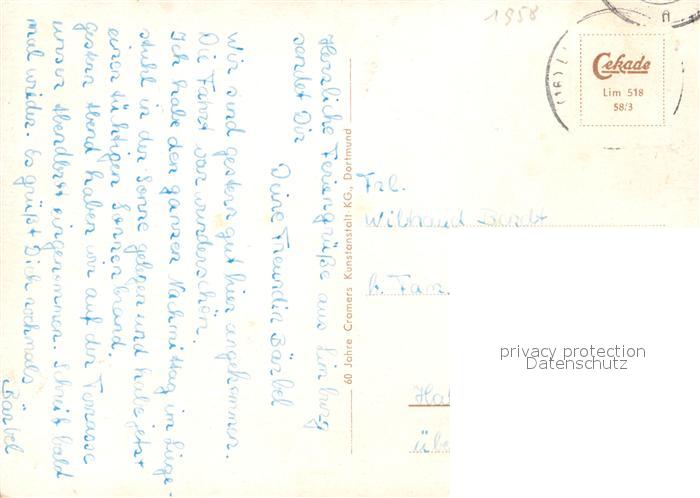 1958
A
Cekade
Lim 518
58/3
Herzliche Feriengrüße aus Limburg
sendet Dir
Deine Freundin Bärbel
Wir sind gestern gut hier angekommen.
Die Fahrt war wunderschön.
Ich habe den ganzen Nachmittag im Liege-
stuhl in der Sonne gelegen und habe jetzt
einen tüchtigen Sonnenbrand.
Gestern Abend haben wir auf der Terrasse
unser Abendbrot eingenommen. Schreib bald
mal wieder. Es grüßt Dich nochmals
Bärbel
60 Jahre Cramers Kunstanstalt KG., Dortmund
Frl.
Wiltraud
b. Fam.
privacy protection
Datenschutz